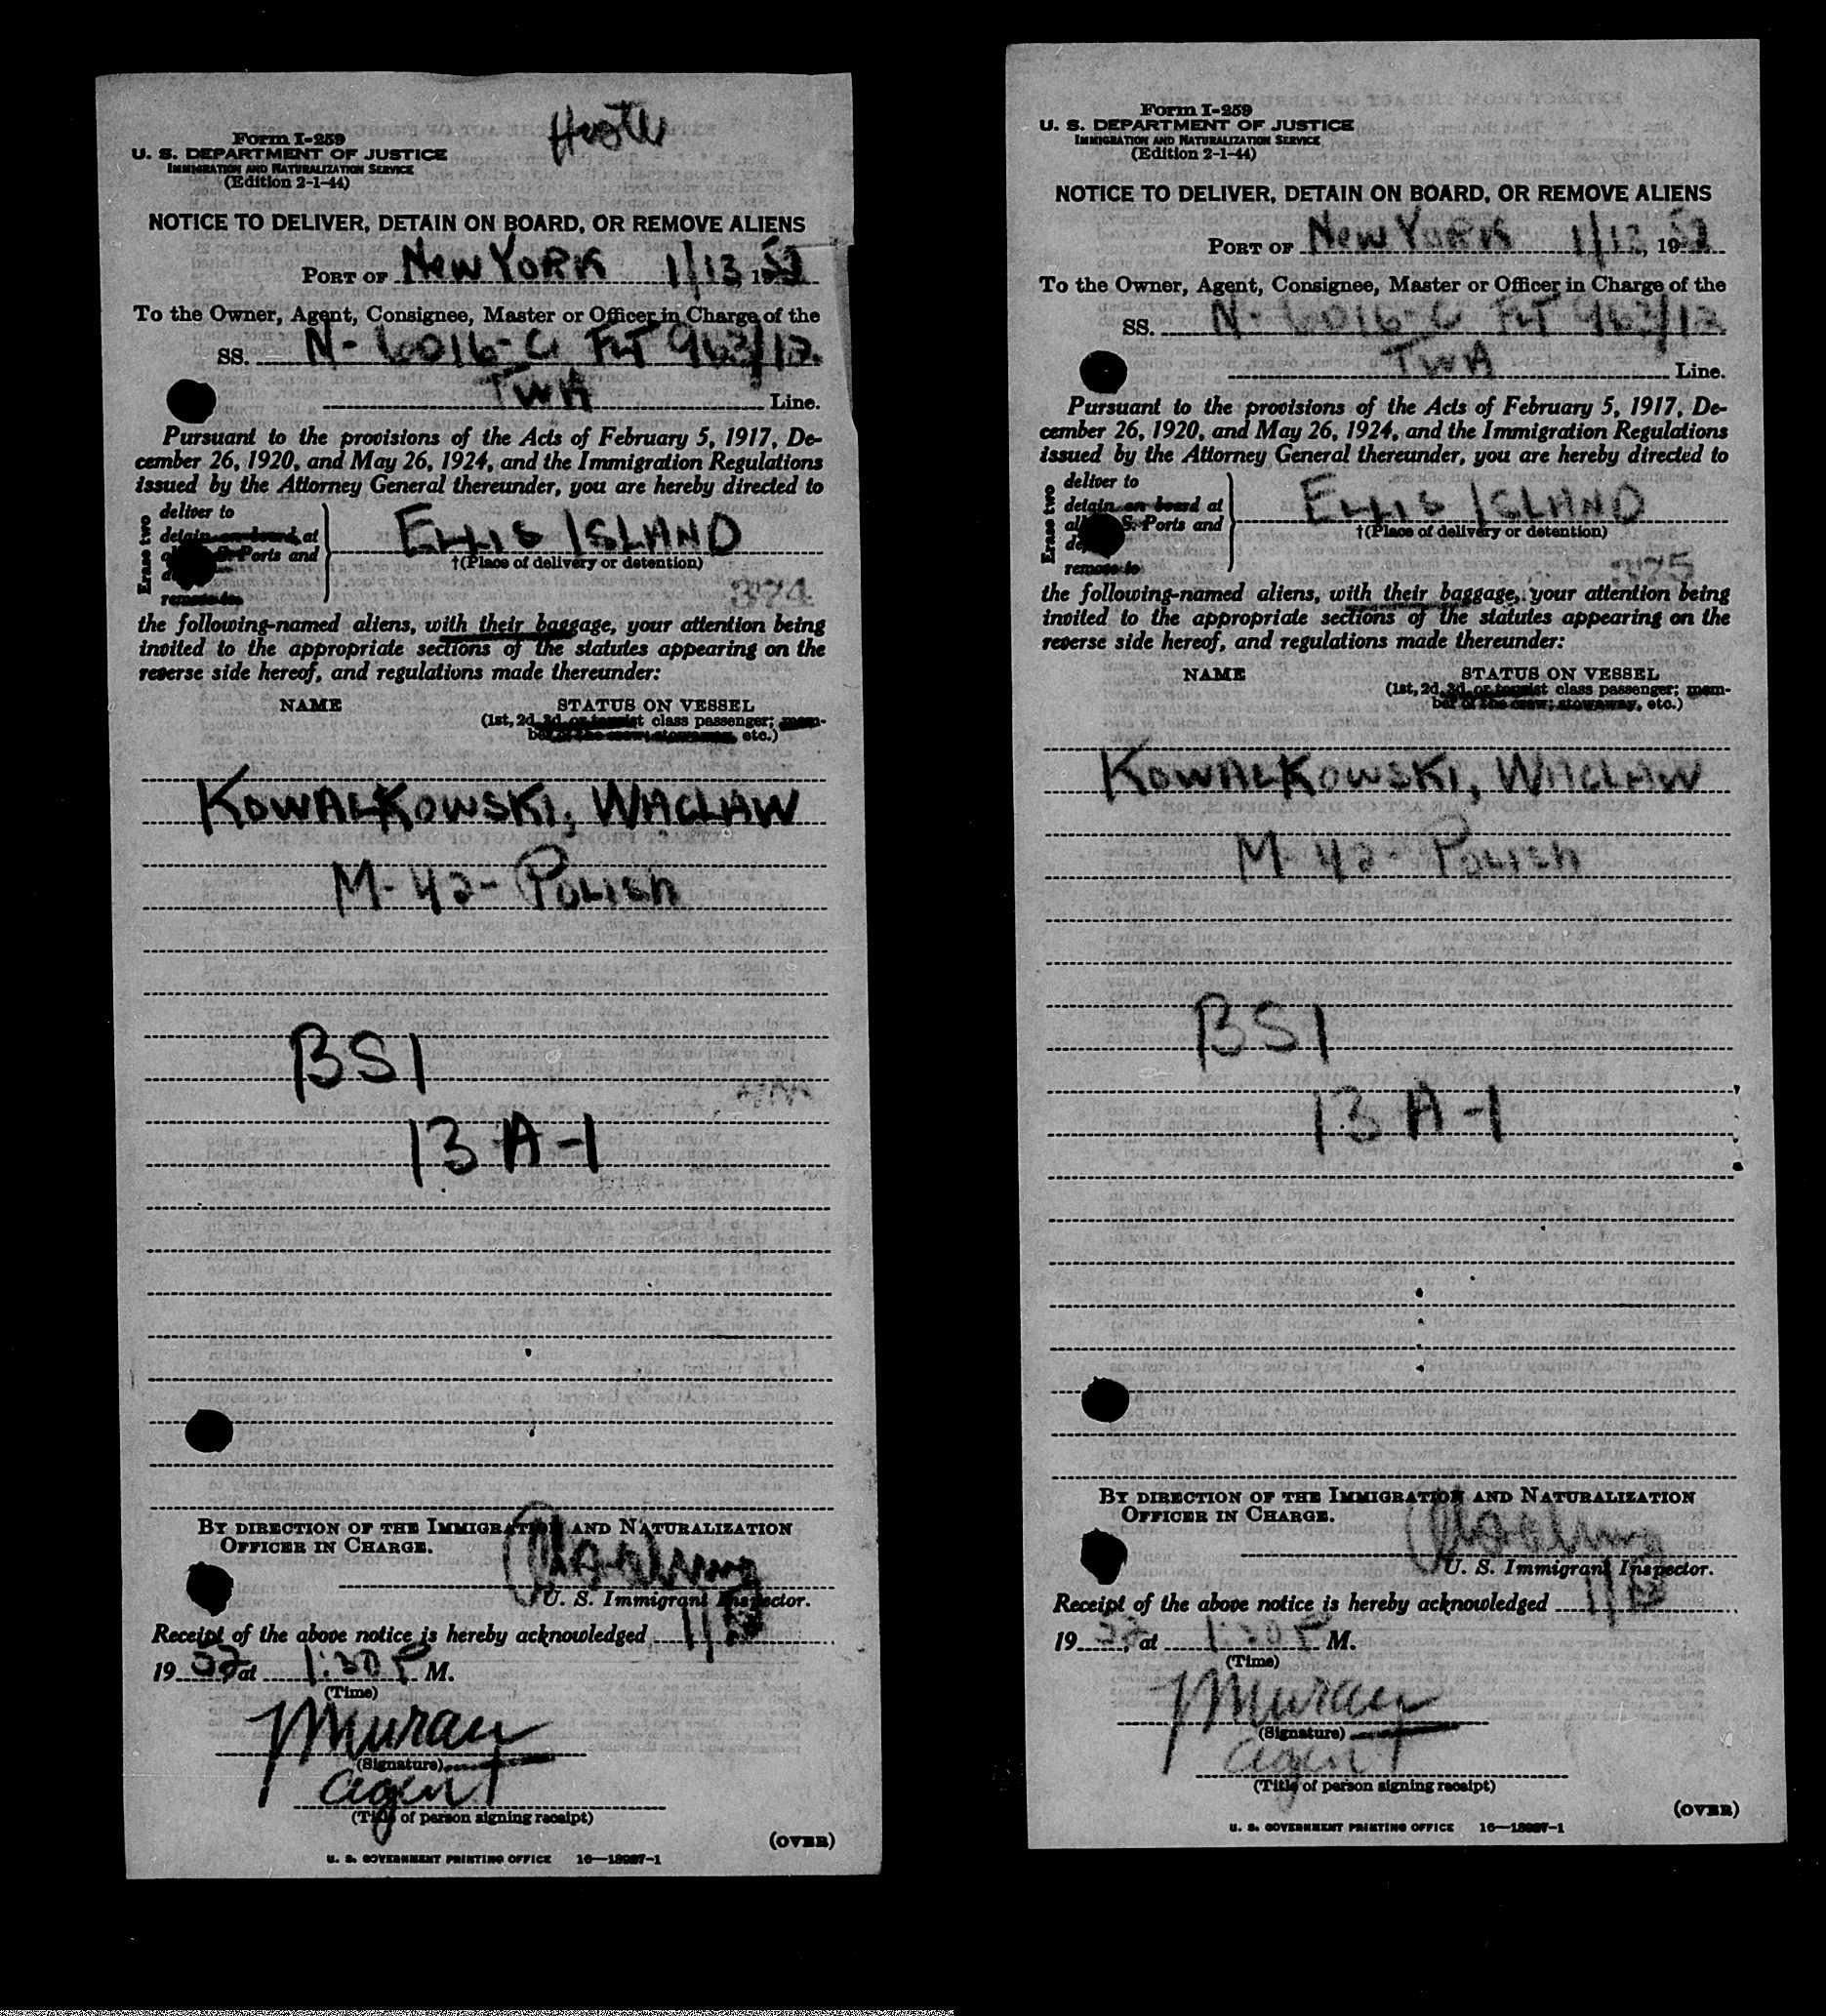 Form I-259
U. S. DEPARTMENT OF JUSTICE
IMMIGRATION AND NATURALIZATION SERVICE
(Edition 2-1-44)
NOTICE TO DELIVER, DETAIN ON BOARD, OR REMOVE ALIENS
PORT OF NEW YORK 1/13, 1952
To the Owner, Agent, Consignee, Master or Officer in Charge of the
SS. N-6016-C FLT 963/12
TWA Line.
Pursuant to the provisions of the Acts of February 5, 1917, De-
cember 26, 1920, and May 26, 1924, and the Immigration Regulations
issued by the Attorney General thereunder, you are hereby directed to
Erase two
deliver to
detain on board at
S. Ports and
remove to
ELLIS ISLAND
†(Place of delivery or detention)
374
the following-named aliens, with their baggage, your attention being
invited to the appropriate sections of the statutes appearing on the
reverse side hereof, and regulations made thereunder:
NAME STATUS ON VESSEL
(1st, 2d, 3d, or tourist class passenger; mem-
ber of the crew; stowaway, etc.)
KOWALKOWSKI, WACLAW
M-42-POLISH
BSI
13 A-1
BY DIRECTION OF THE IMMIGRATION AND NATURALIZATION
OFFICER IN CHARGE.
U. S. Immigrant Inspector.
Receipt of the above notice is hereby acknowledged 1/13
1952, at 1:30 P M.
(Time)
(Signature)
agent
(Title of person signing receipt)
(OVER)
U. S. GOVERNMENT PRINTING OFFICE 16—18987-1
Form I-259
U. S. DEPARTMENT OF JUSTICE
IMMIGRATION AND NATURALIZATION SERVICE
(Edition 2-1-44)
NOTICE TO DELIVER, DETAIN ON BOARD, OR REMOVE ALIENS
PORT OF NEW YORK 1/13, 1952
To the Owner, Agent, Consignee, Master or Officer in Charge of the
SS. N-6016-C FLT 963/12
TWA Line.
Pursuant to the provisions of the Acts of February 5, 1917, De-
cember 26, 1920, and May 26, 1924, and the Immigration Regulations
issued by the Attorney General thereunder, you are hereby directed to
Erase two
deliver to
detain on board at
S. Ports and
remove to
ELLIS ISLAND
†(Place of delivery or detention)
375
the following-named aliens, with their baggage, your attention being
invited to the appropriate sections of the statutes appearing on the
reverse side hereof, and regulations made thereunder:
NAME STATUS ON VESSEL
(1st, 2d, 3d, or tourist class passenger; mem-
ber of the crew; stowaway, etc.)
KOWALKOWSKI, WACLAW
M-42-POLISH
BSI
13 A-1
BY DIRECTION OF THE IMMIGRATION AND NATURALIZATION
OFFICER IN CHARGE.
U. S. Immigrant Inspector.
Receipt of the above notice is hereby acknowledged 1/13
1952, at 1:30 P M.
(Time)
(Signature)
agent
(Title of person signing receipt)
(OVER)
U. S. GOVERNMENT PRINTING OFFICE 16—18987-1